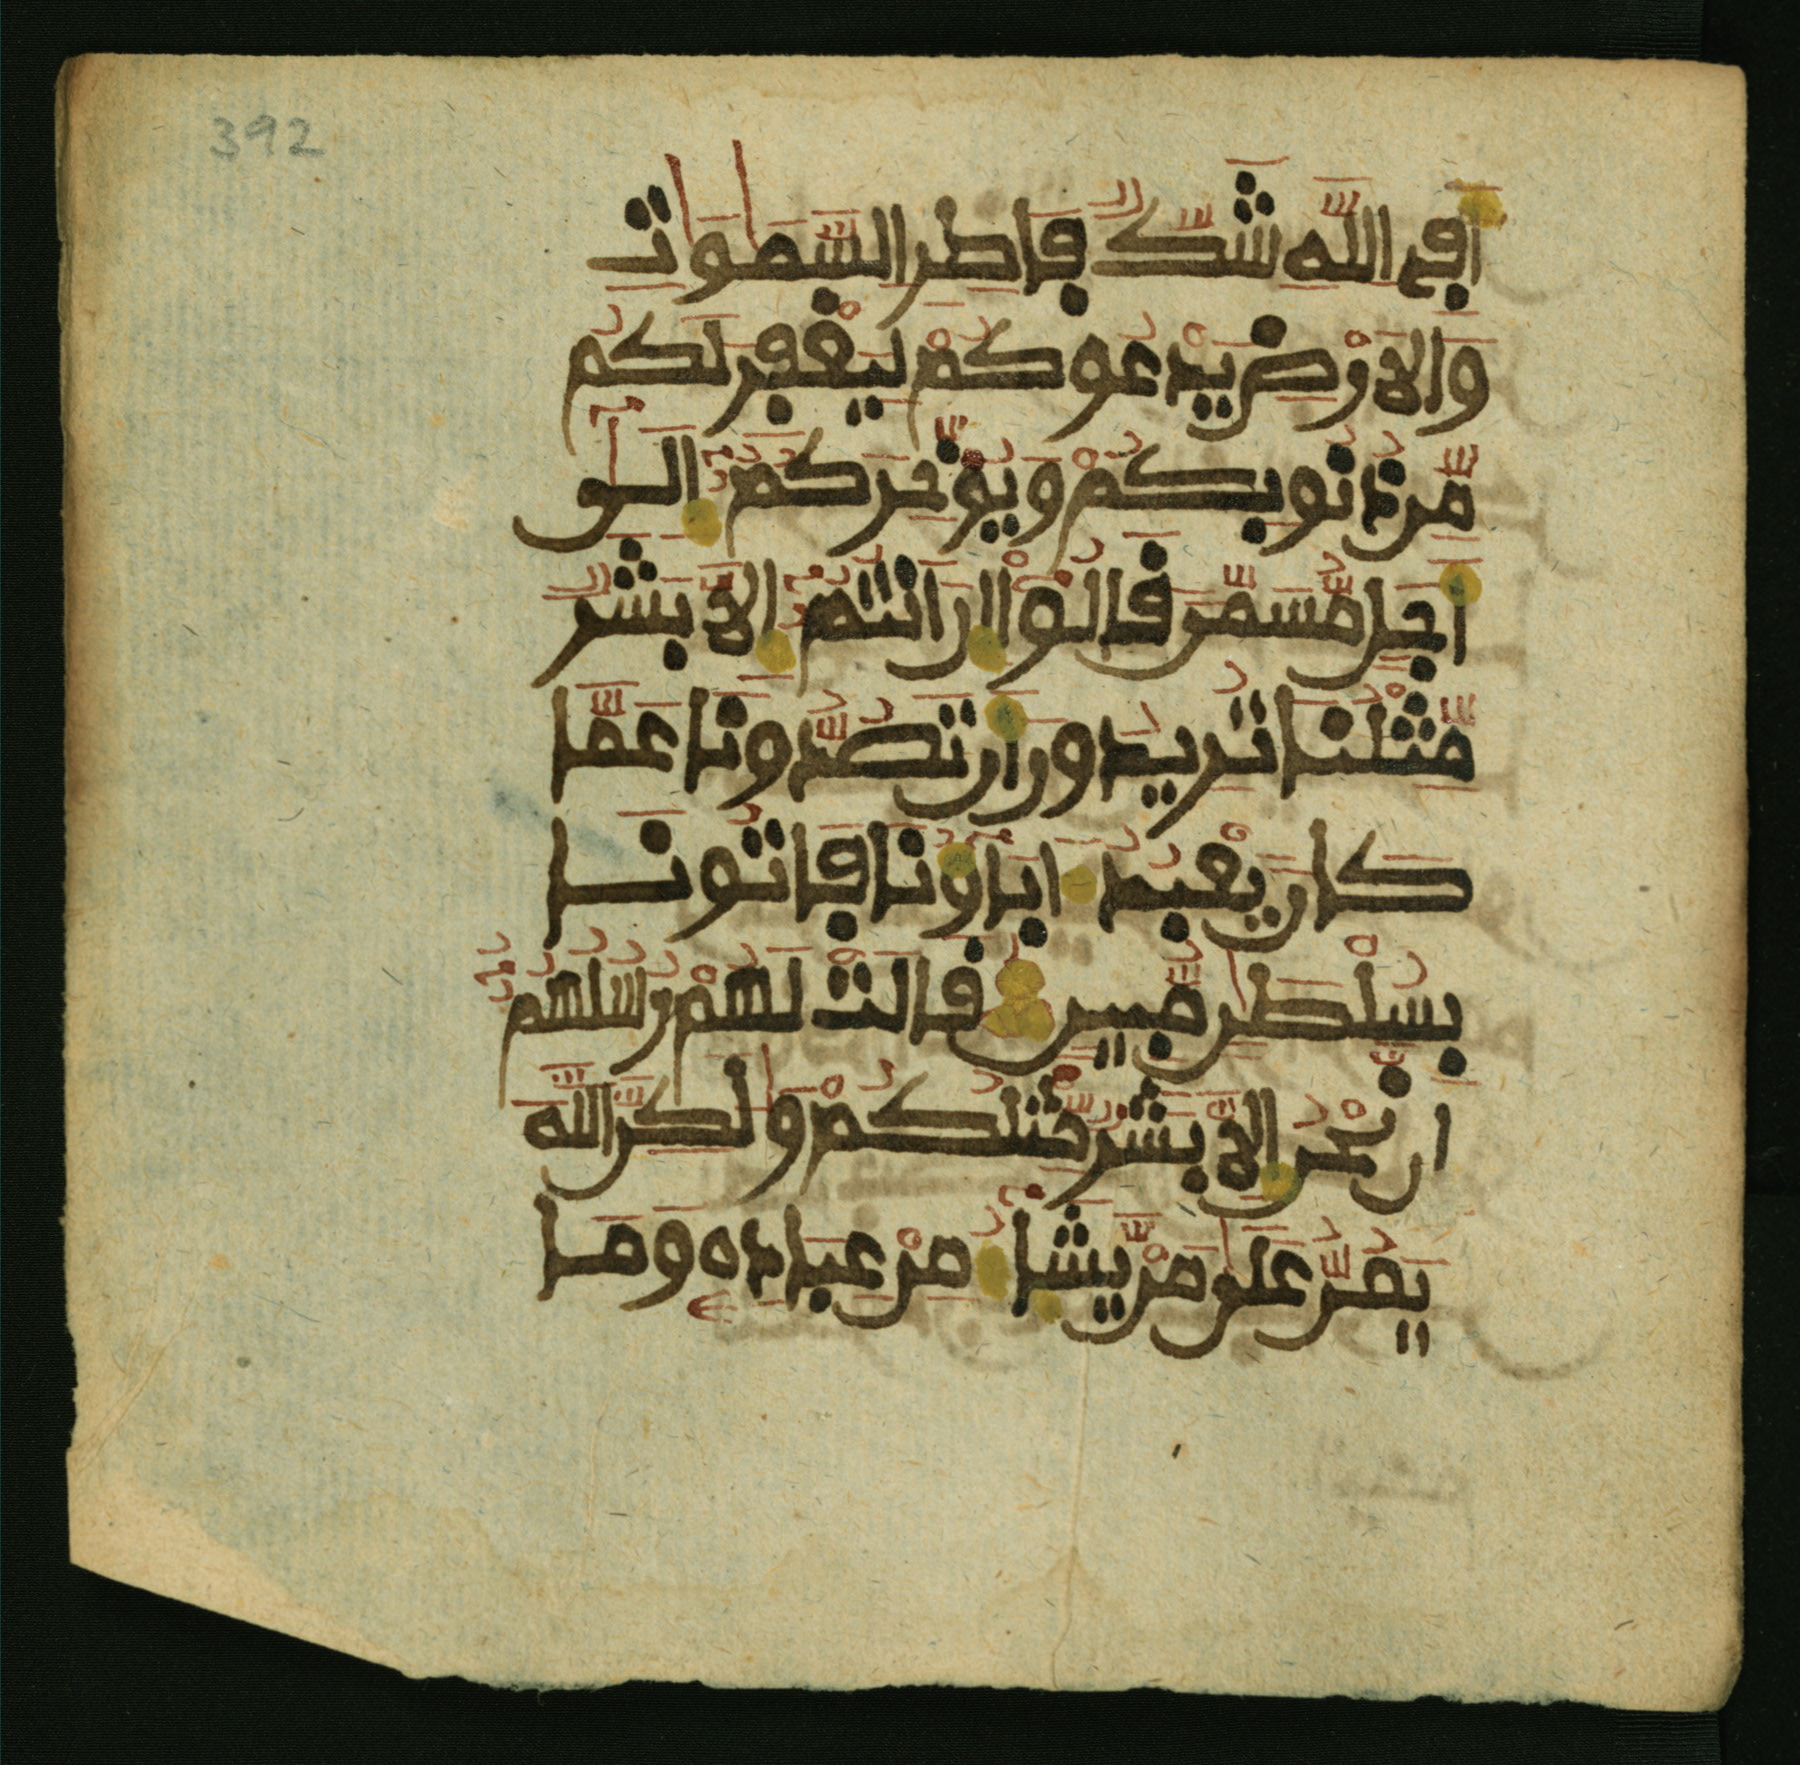 392
أَفِي اللَّهِ شَكٌّ فَاطِرِ السَّمَٰوَٰتِ
وَالَارْضِ يَدْعُوكُمْ لِيَغْفِرَ لَكُم
مِّن ذُنُوبِكُمْ وَيُوَخِّرَكُمُۥٓ إِلَىٰٓ
أَجَلٍ مُّسَمًّى قَالُوٓا إِنَ انتُمُۥٓ إِلَّا بَشَرٌ
مِّثْلُنَا تُرِيدُونَ أَن تَصُدُّونَا عَمَّا
كَانَ يَعْبُدُ ءَابَآؤُنَا فَاتُونَا
بِسُلْطَٰنٍ مُّبِينٍ قَالَتْ لَهُمْ رُسُلُهُمُۥٓ
إِن نَّحْنُ إِلَّا بَشَرٌ مِّثْلُكُمْ وَلَٰكِنَّ اللَّهَ
يَمُنُّ عَلَىٰ مَنْ يَّشَآءُ مِنْ عِبَادِهِۦ وَمَا